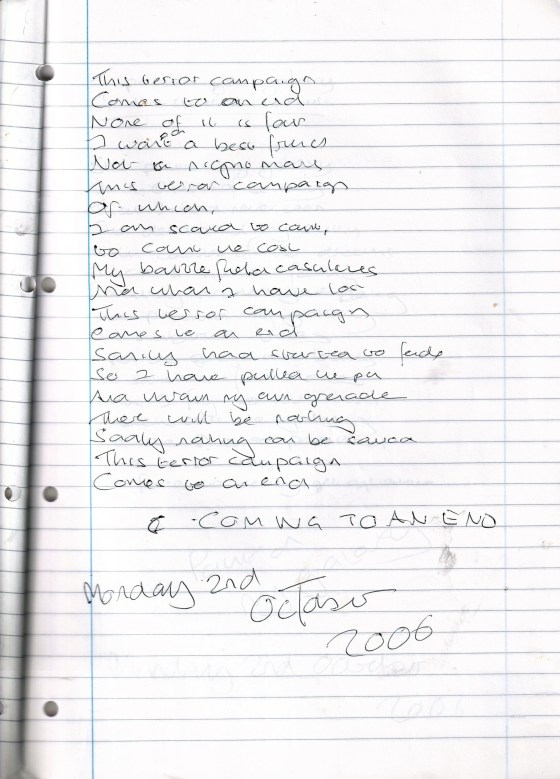 This terror campaign
Comes to an end
None of it is fair
I want a best friend
Not a nightmare
This terror campaign
Of which,
I am scared to count,
to count the cost
My battlefield casualties
And what I have lost
This terror campaign
Comes to an end
Sanity had started to fade
So I have pulled the pin
And thrown my own grenade
There will be nothing
Sadly nothing can be saved
This terror campaign
Comes to an end
COMING TO AN END
Monday 2nd
October
2006